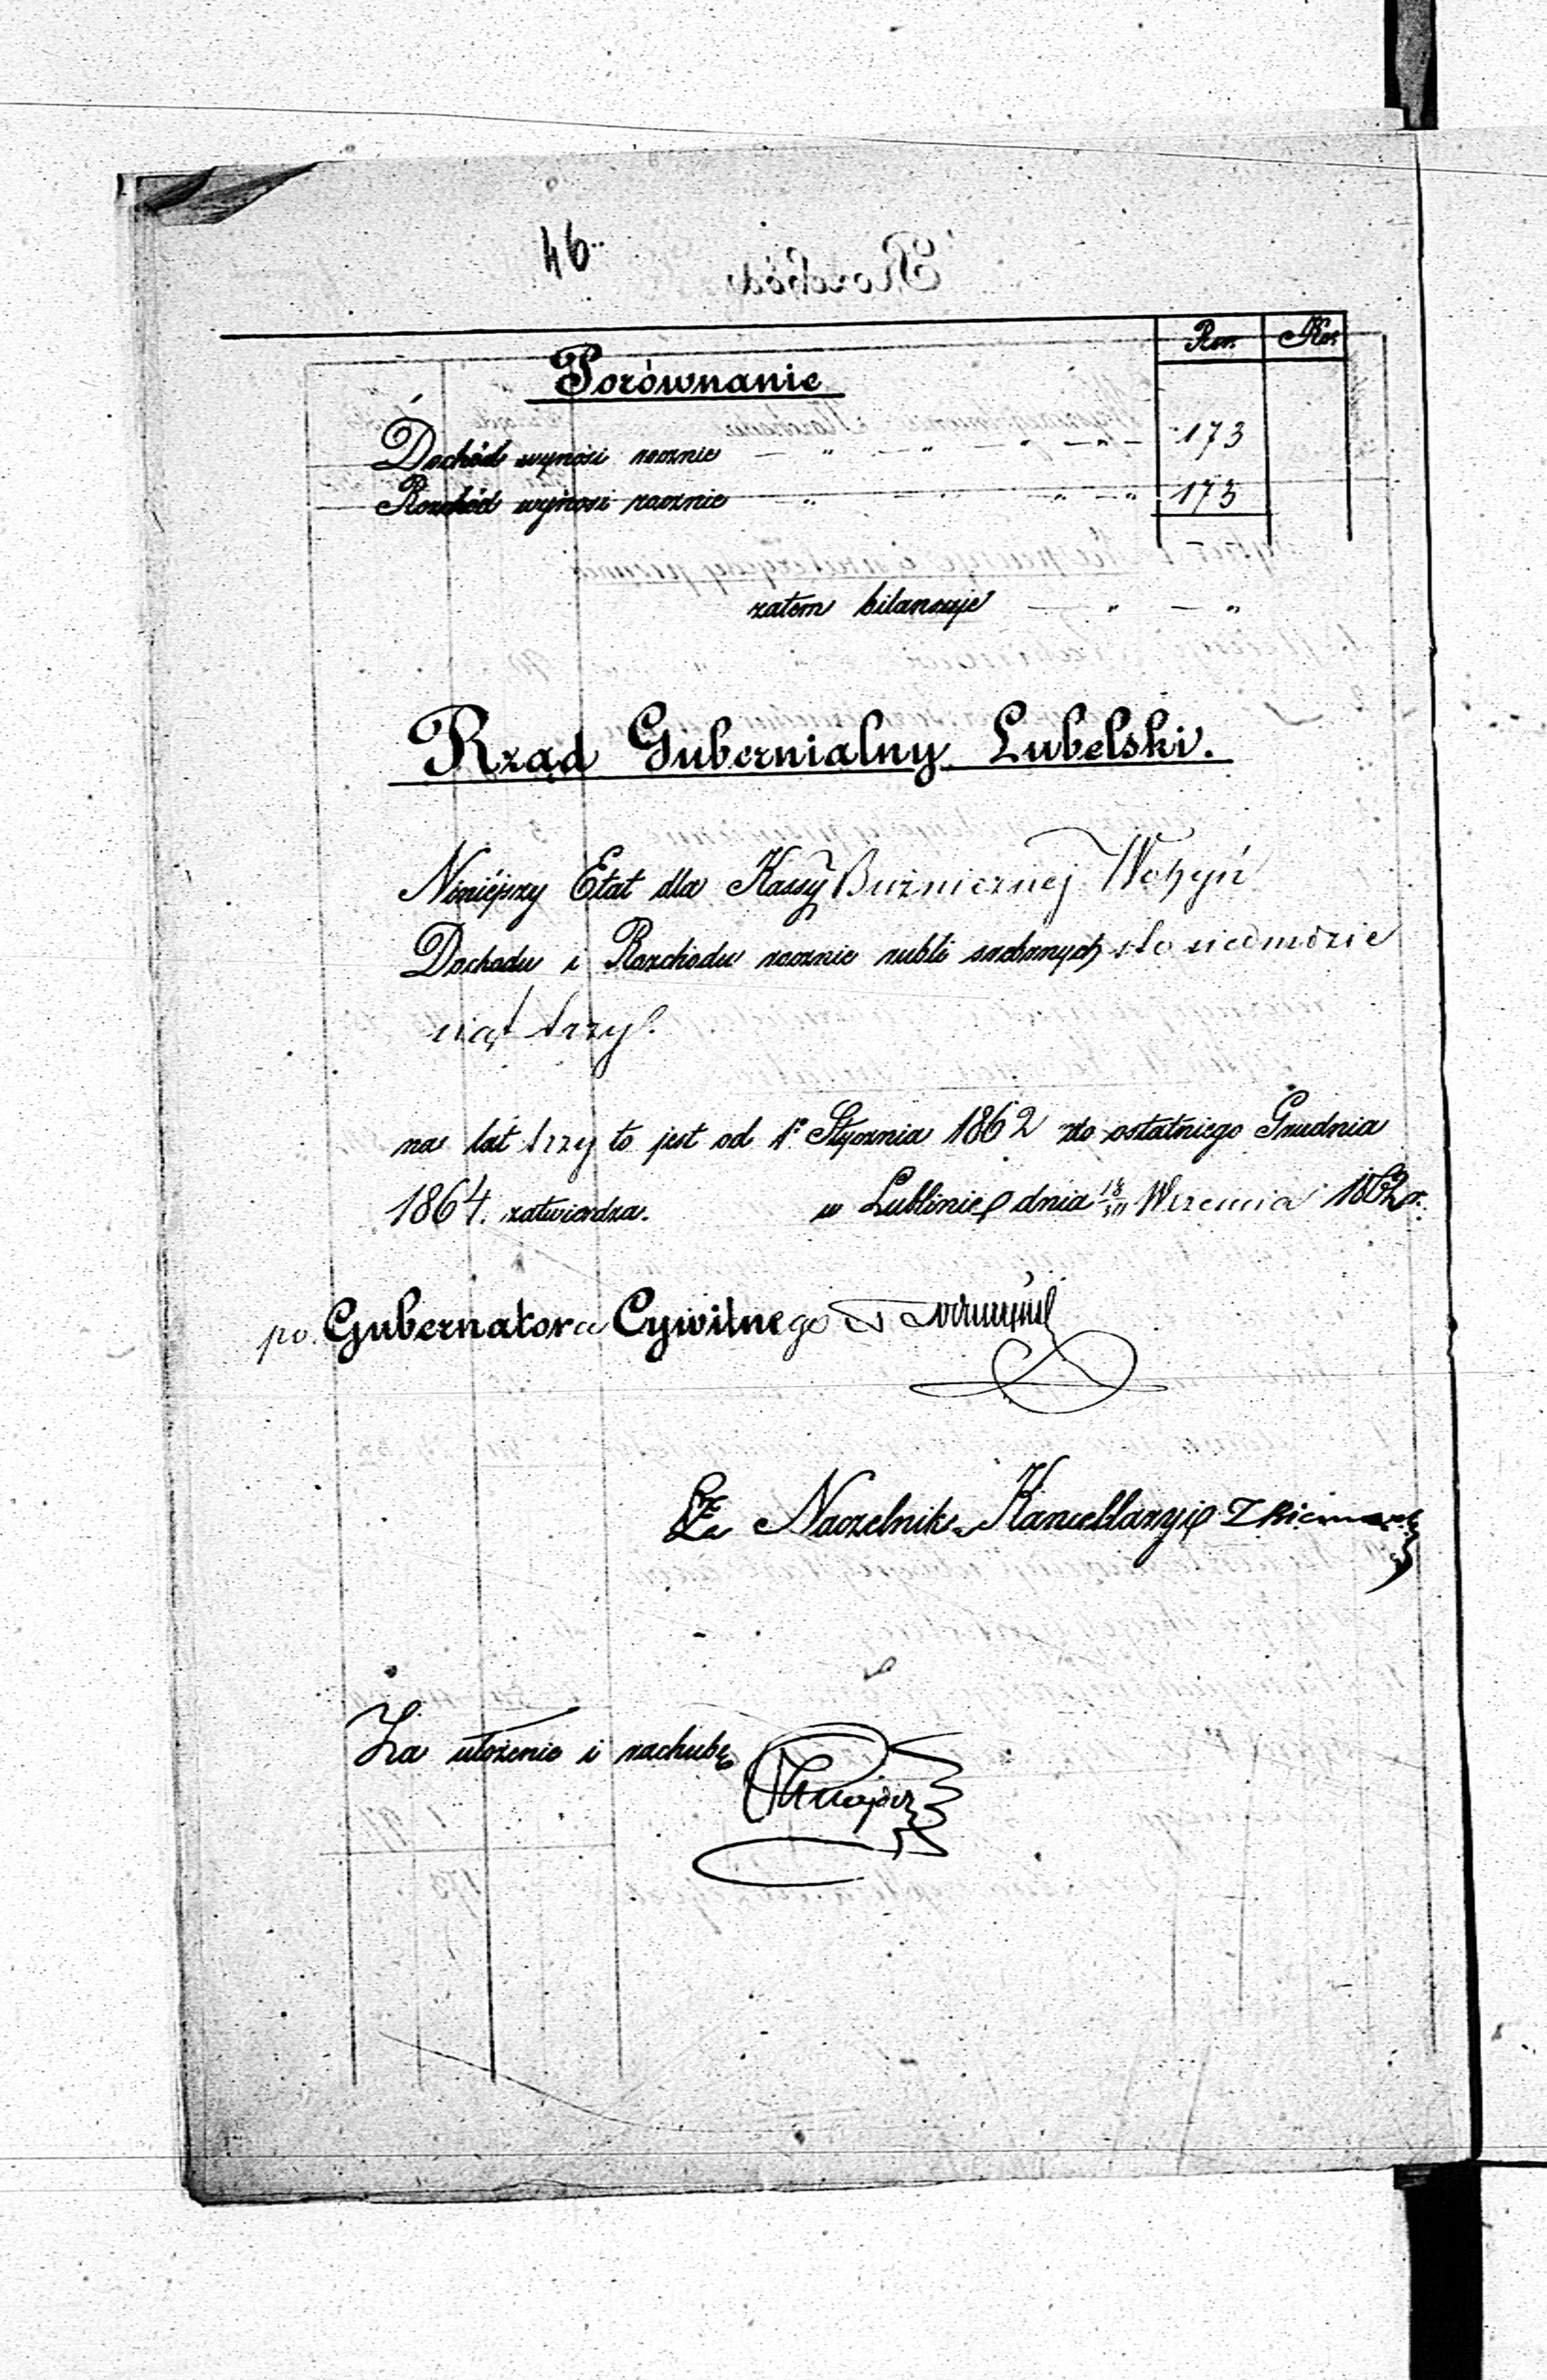 46
Rsr. Kop.
Porównanie
Dochód wynosi rocznie — " — " — " — " — 173
Rozchód wynosi rocznie — " — " — " — " 173
zatem bilansuje — " — "
Rząd Gubernialny Lubelski.
Niniéjszy Etat dla Kassy Bużnicznej Wohyń
Dochodu i Rozchodu rocznie rubli srebrnych sto siedmdzie
siąt trzy
na lat trzy to jest od 1º Stycznia 1862 do ostatniego Grudnia
1864. zatwierdza. w Lublinie dnia Września 1862 r.
po. Gubernatora Cywilnego
Za Naczelnika Kancellaryi
Za ułożenie i rachubę